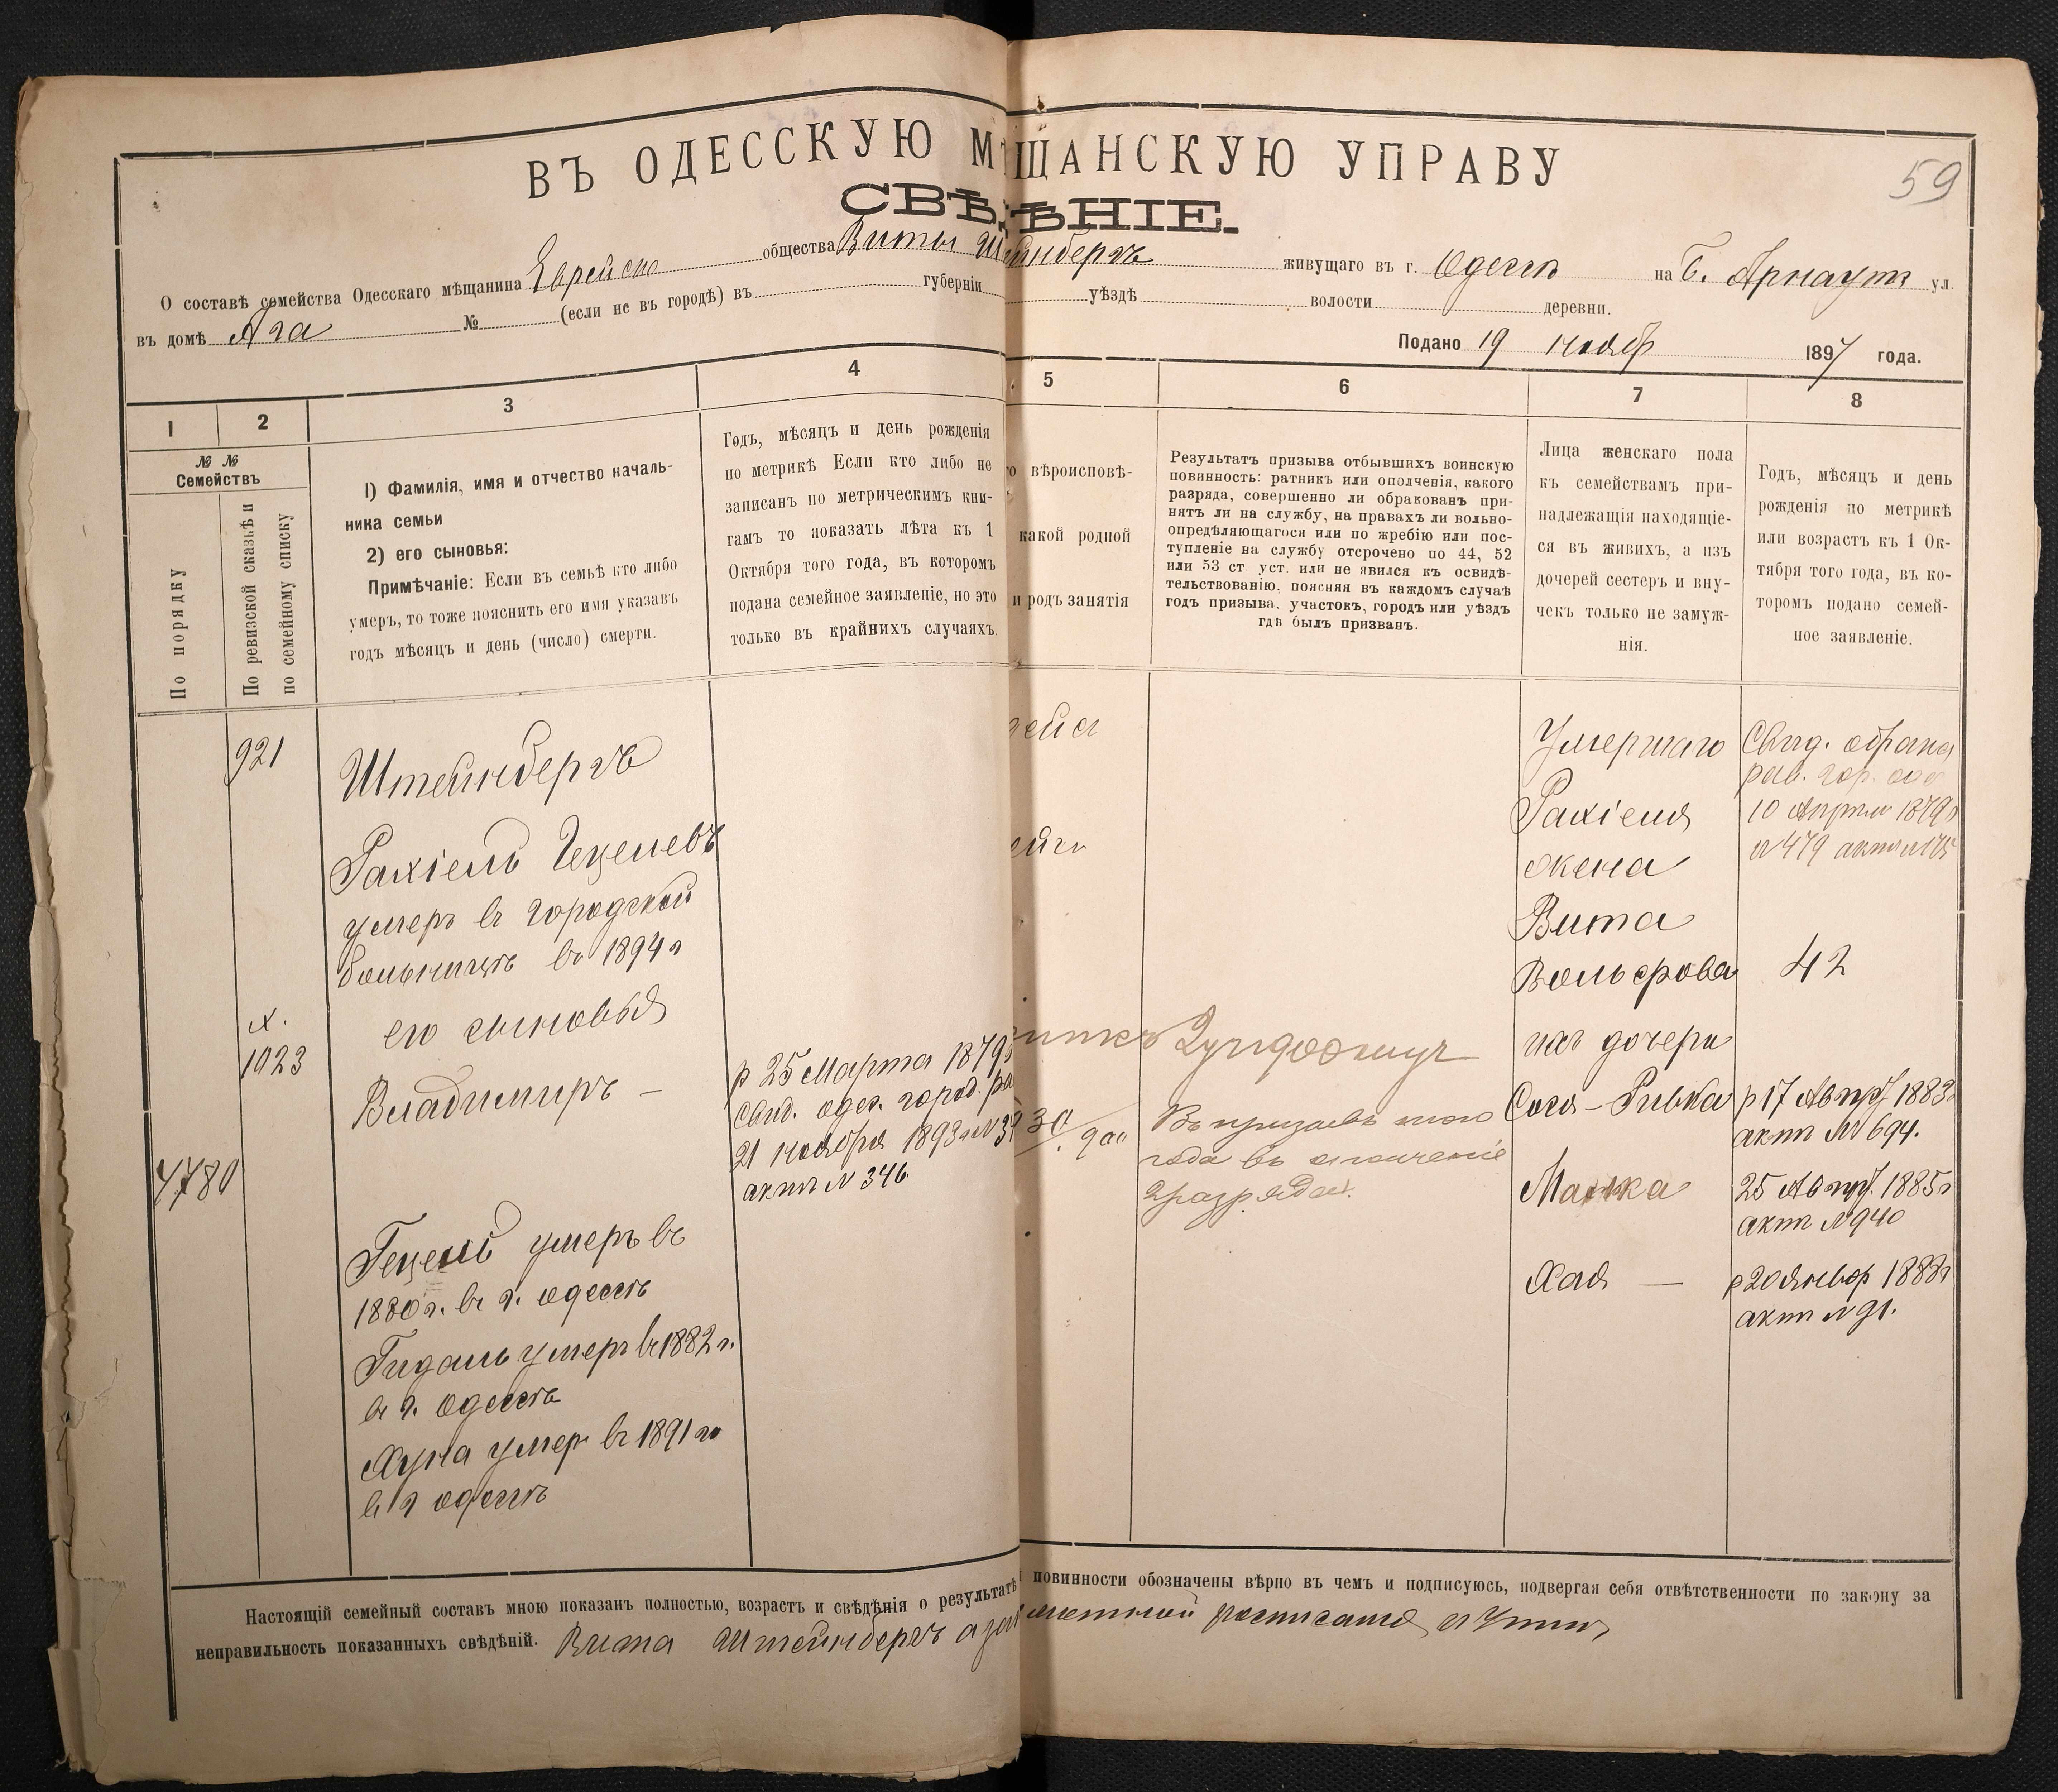 ВЪ ОДЕССКУЮ МѢЩАНСКУЮ УПРАВУ
59
СВѢДѢНІЕ.
О составѣ семейства Одесскаго мѣщанина Еврейско общества Виты Штейнбергъ живущаго въ г. Одессѣ на Б. Арнаут ул.
въ домѣ Яга № (если не въ городѣ) въ губерніи уѣздѣ волости деревни.
Подано 19 ноябр 1897 года.
1 2 3 4 5 6 7 8
№ №
Семействъ
По порядку
По ревизской сказкѣ и
по семейному списку
1) Фамилія, имя и отчество началь-
ника семьи
2) его сыновья:
Примѣчаніе: Если въ семьѣ кто либо
умеръ, то тоже пояснить его имя указавъ
годъ мѣсяцъ и день (число) смерти.
Годъ, мѣсяцъ и день рожденія
по метрикѣ Если кто либо не
записанъ по метрическимъ кни-
гамъ то показать лѣта къ 1
Октября того года, въ которомъ
подана семейное заявленіе, но это
только въ крайнихъ случаяхъ.
вѣроисповѣ-
какой родной
и родъ занятія
Результатъ призыва отбывшихъ воинскую
повинность: ратникъ или ополченія, какого
разряда, совершенно ли обракованъ при-
нятъ ли на службу, на правахъ ли вольно-
опредѣляющагося или по жребію или пос-
тупленіе на службу отсрочено по 44, 52
или 53 ст. уст. или не явился къ освидѣ-
тельствованію, поясняя въ каждомъ случаѣ
годъ призыва, участокъ, городъ или уѣздъ
гдѣ былъ призванъ.
Лица женскаго пола
къ семействамъ при-
надлежащія находящіе-
ся въ живихъ, а изъ
дочерей сестеръ и вну-
чекъ только не замуж-
нія.
Годъ, мѣсяцъ и день
рожденія по метрикѣ
или возрастъ къ 1 Ок-
тября того года, въ ко-
торомъ подано семей-
ное заявленіе.
921
Штейнбергъ
Рахіель Гецелевъ
умеръ въ городской
больницѣ въ 1894 г
его сыновья
1023
Владимиръ —
4780
Гецель умеръ въ
1880 г. въ г. Одессѣ
Гидаль умеръ въ 1882 г.
въ г. Одессѣ
Хуна умер въ 1891 г
въ г Одессѣ
р 25 Марта 1879
свид. одес. город. ра
21 ноября 1893 г №
актъ № 346
30
Въ призывъ
года въ ополченіе
2 разряда
Умершаго
Рахіеля
жена
Вита
Вольфова
ихъ дочери
Сося-Ривка
Манка
Хая —
Свид.
рав. гор.
10 Апрѣл 1879
№ 479 актъ
42
р 17 Авгус 1883
актъ № 694.
25 Авгус. 1885 г
актъ № 940
р 20 Январ 1888 г
актъ № 91.
Настоящій семейный составъ мною показанъ полностью, возрастъ и свѣдѣнія о результатѣ повинности обозначены вѣрно въ чемъ и подписуюсь, подвергая себя отвѣтственности по закону за
неправильность показанныхъ свѣдѣній. Вита Штейнбергъ а за росписался